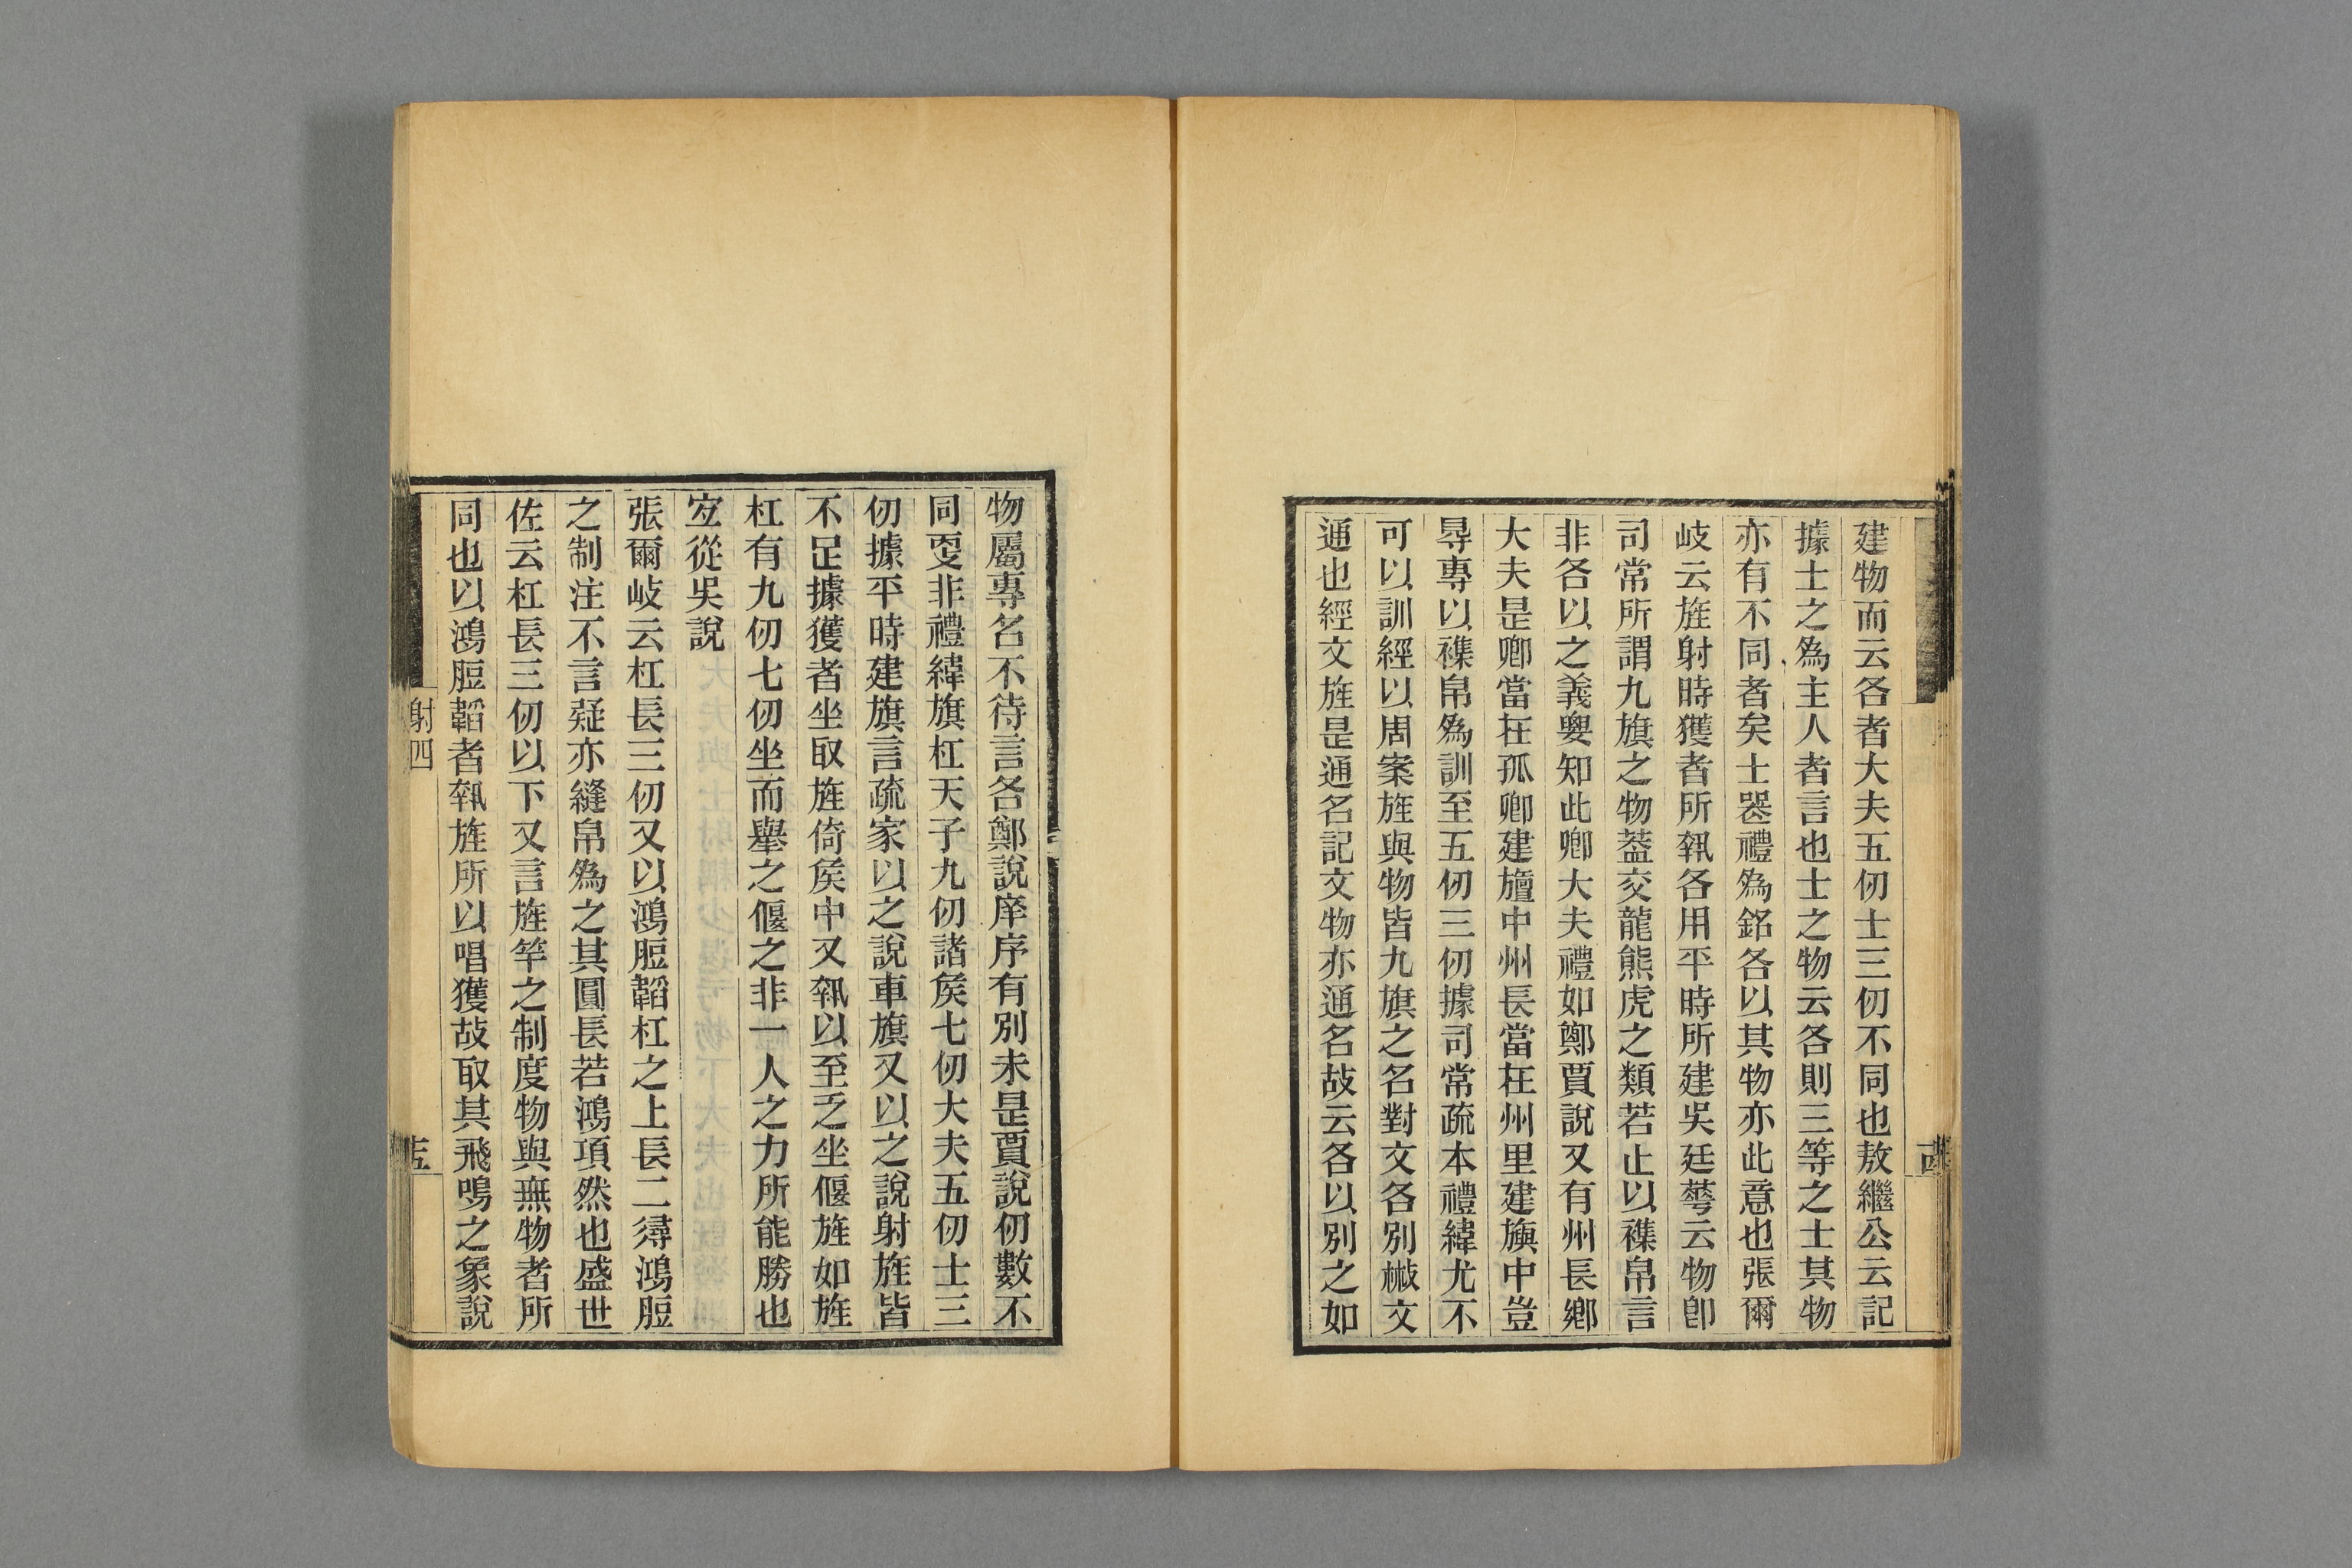 建物而云各者大夫五仞士三仞不同也敖繼公云記
據士之爲主人者言也士之物云各則三等之士其物
亦有不同者矣士喪禮爲銘各以其物亦此意也張爾
岐云旌射時獲者所執各用平時所建吳廷華云物卽
司常所謂九旗之物蓋交龍熊虎之類若止以襍帛言
非各以之義要知此卿大夫禮如鄭賈說又有州長鄉
大夫是卿當在孤卿建旜中州長當在州里建旟中豈
㝵專以襍帛爲訓至五仞三仞據司常疏本禮緯尤不
可以訓經以周案旌與物皆九旗之名對文各別㪔文
通也經文旌是通名記文物亦通名故云各以別之如
物屬專名不待言各鄭說庠序有別未是賈說仞數不
同㪅非禮緯旗杠天子九仞諸矦七仞大夫五仞士三
仞據平時建旗言疏家以之說車旗又以之說射旌皆
不足據獲者坐取旌倚矦中又執以至乏坐偃旌如旌
杠有九仞七仞坐而舉之偃之非一人之力所能勝也
宐從吳說
張爾岐云杠長三仞又以鴻脰韜杠之上長二尋鴻脰
之制注不言疑亦縫帛爲之其圓長若鴻項然也盛世
佐云杠長三仞以下又言旌竿之制度物與無物者所
同也以鴻脰韜者執旌所以唱獲故取其飛鳴之象說
射四